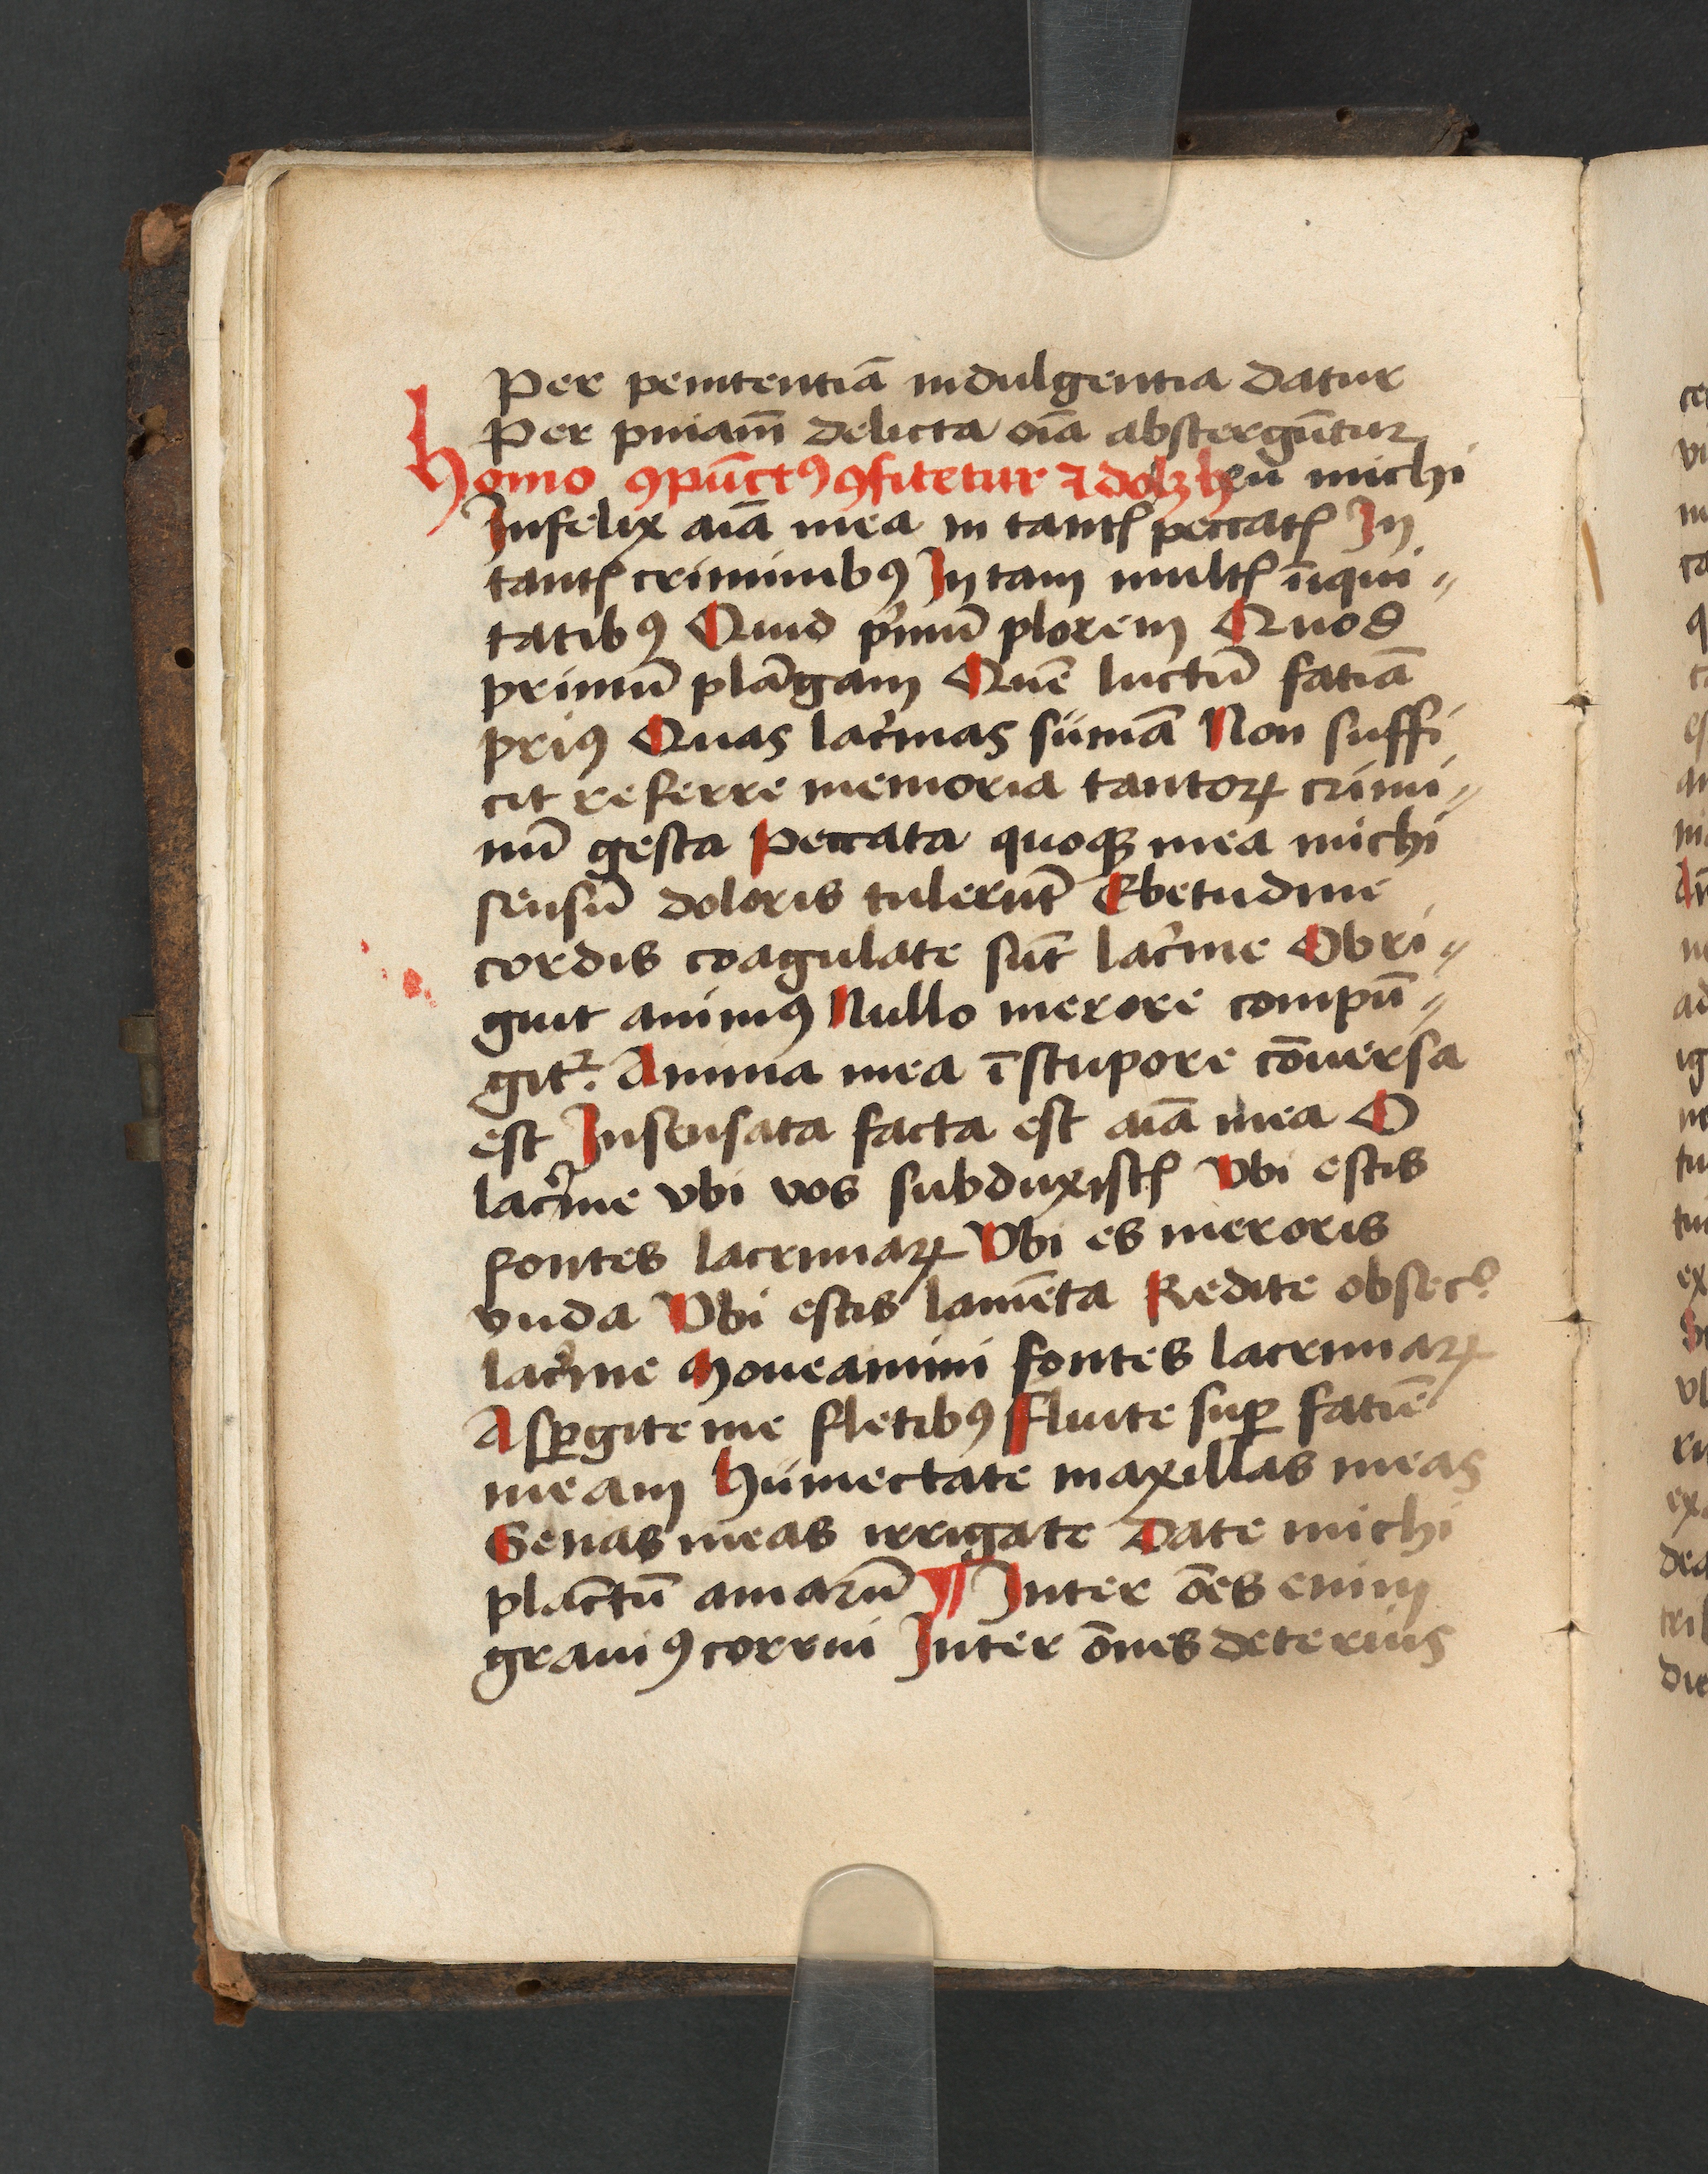 Per penitentiā indulgentia datur
Per pniam̄ delicta oīa abstergūtur
Homo ꝯpūctꝰ ꝯfitetur ⁊ dolꝫ heu michi
Infelix aīa mea in tantꝭ peccatꝭ In
tantꝭ criminibꝰ In tam multꝭ iīqui〃
tatibꝰ Quid pͥmū plorem Quod
primū plāgam Quē luctū fatiā
priꝰ Quas lacͥmas sūmā Non suffi
cit referre memoria tantoꝝ crimi〃
nū gesta Peccata quoqꝫ mea michi
sensū doloris tulerūt Ebetudine
cordis coagulate sūt lacͥme Obri〃
guit animꝰ Nullo merore compū〃
gitᷣ. Anima mea ī stupore cōuersa
est Insensata facta est aīa mea O
lacͥme vbi vos subduxistꝭ Vbi estis
fontes lacrimaꝝ Vbi es meroris
vnda Vbi estis lamēta Redite obsecᵒ
lacͥme Moueamini fontes lacrimaꝝ
Aspꝑgite me fletibꝰ Fluite suꝑ fatiē
meam Humectate maxillas meas
Genas meas irrigate Date michi
plāctū amarū ¶ Inter ōēs enim
grauiꝰ corrui Inter ōmes deterius